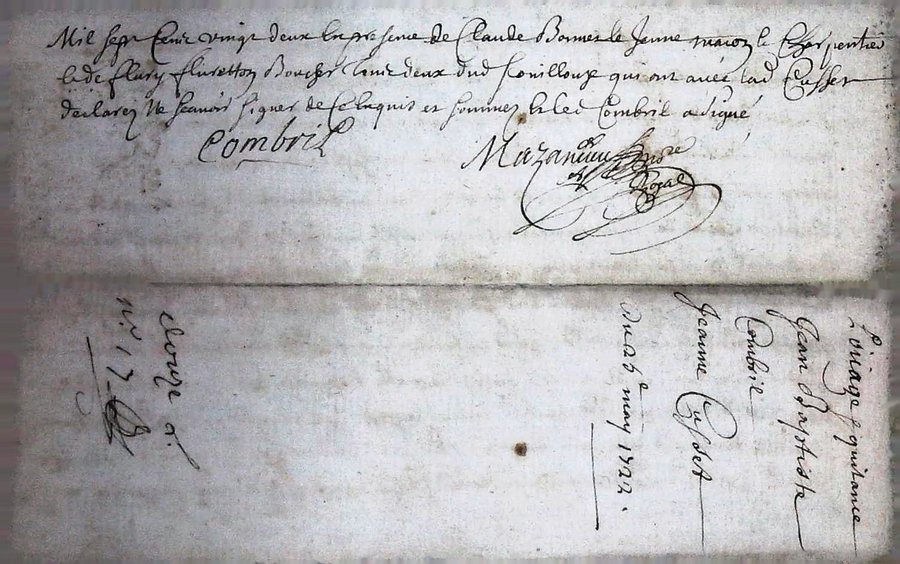 Mil sept Cent vingt deux En presence de Claude Bonnet le Jeune maçon le Charpentier
et de fleury fluretton Boucher tous deux dud fouilloux qui ont avec lad Cusset
declarez Ne Scavoir Signer de Ce Enquis et sommez et led Combril a signé
Combril
Mazancieu
Nore
Royal
Louage & quitance
Jean Baptiste
Combril
Jeanne Cusset
du 26e may 1722.